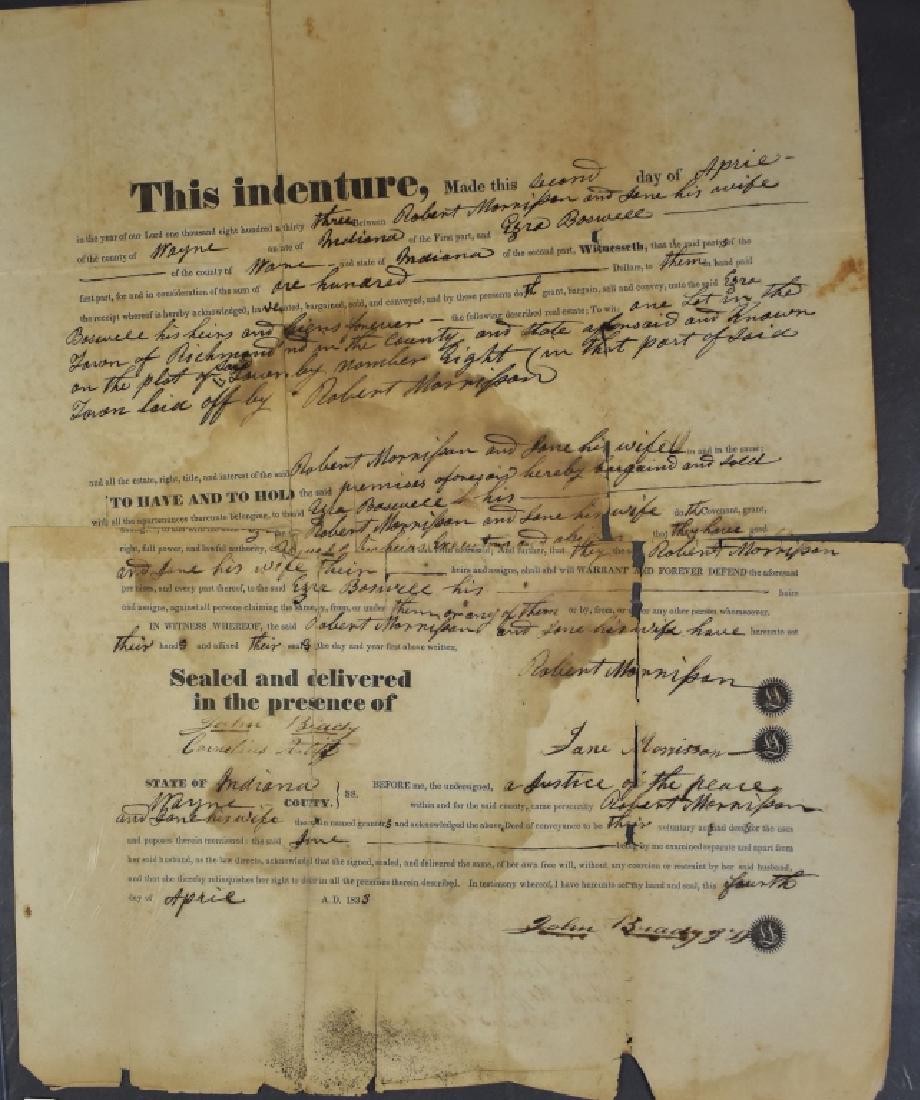 This indenture, Made this second day of April
in the year of our Lord one thousand eight hundred and thirty three Between Robert Morrisson and Jane his wife
of the county of Wayne and state of Indiana of the First part, and Ezra Boswell
of the county of Wane and state of Indiana of the second part, Witnesseth, that the said partys of the
first part, for and in consideration of the sum of one hundred Dollars, to them in hand paid
the receipt whereof is hereby acknowledged, have granted, bargained, sold, and conveyed, and by these presents doth grant, bargain, sell and convey, unto the said Ezra
Boswell his heirs and forever the following described real estate; To wit, one Lot in the
Town of Richmond and in the County and State aforesaid and known
on the plot of said Town by number Eight (in that part of said
Town laid off by Robert Morrisson
and all the estate, right, title, and interest of the said Robert Morrisson and Jane his wife in and to the same;
TO HAVE AND TO HOLD the said premises hereby bargaind and sold
with all the apurtenances thereunto belonging, to the said Ezra Boswell his
Robert Morrisson and Jane his wife doth covenant, grant,
that they have good
right, full power, and lawful authority, And further, that they the Robert Morrisson
and Jane his wife their heirs and assigns, shall and will WARRANT AND FOREVER DEFEND the aforesaid
premises, and every part thereof, to the said Ezra Boswell his heirs
and assigns, against all persons claiming the same, by, from, or under them or any of them or by, from, or under any other person whomsoever.
IN WITNESS WHEREOF, the said Robert Morrisson and Jane his wife have hereunto set
their hands and affixed their seals the day and year first above written,
Robert Morrisson
Sealed and delivered
in the presence of
John Brady
Cornelius
Jane Morrisson
STATE OF Indiana
Wayne COUTY. } SS. BEFORE me, the undersigned, a Justice of the peace
within and for the said county, came personally Robert Morrisson
and Jane his wife therein named grantors and acknowledged the above Deed of conveyance to be their voluntary act and deed for the uses
and poposes therein mentioned: the said Jane being by me examined separate and apart from
her said husband, as the law directs, acknowledged that she signed, sealed, and delivered the same, of her own free will, without any coercion or restraint by her said husband,
and that she thereby relinquishes her right to dower in all the premises therein described. In testimony whereof, I have hereunto set my hand and seal, this fourth
day of April A.D. 1833
John Brady